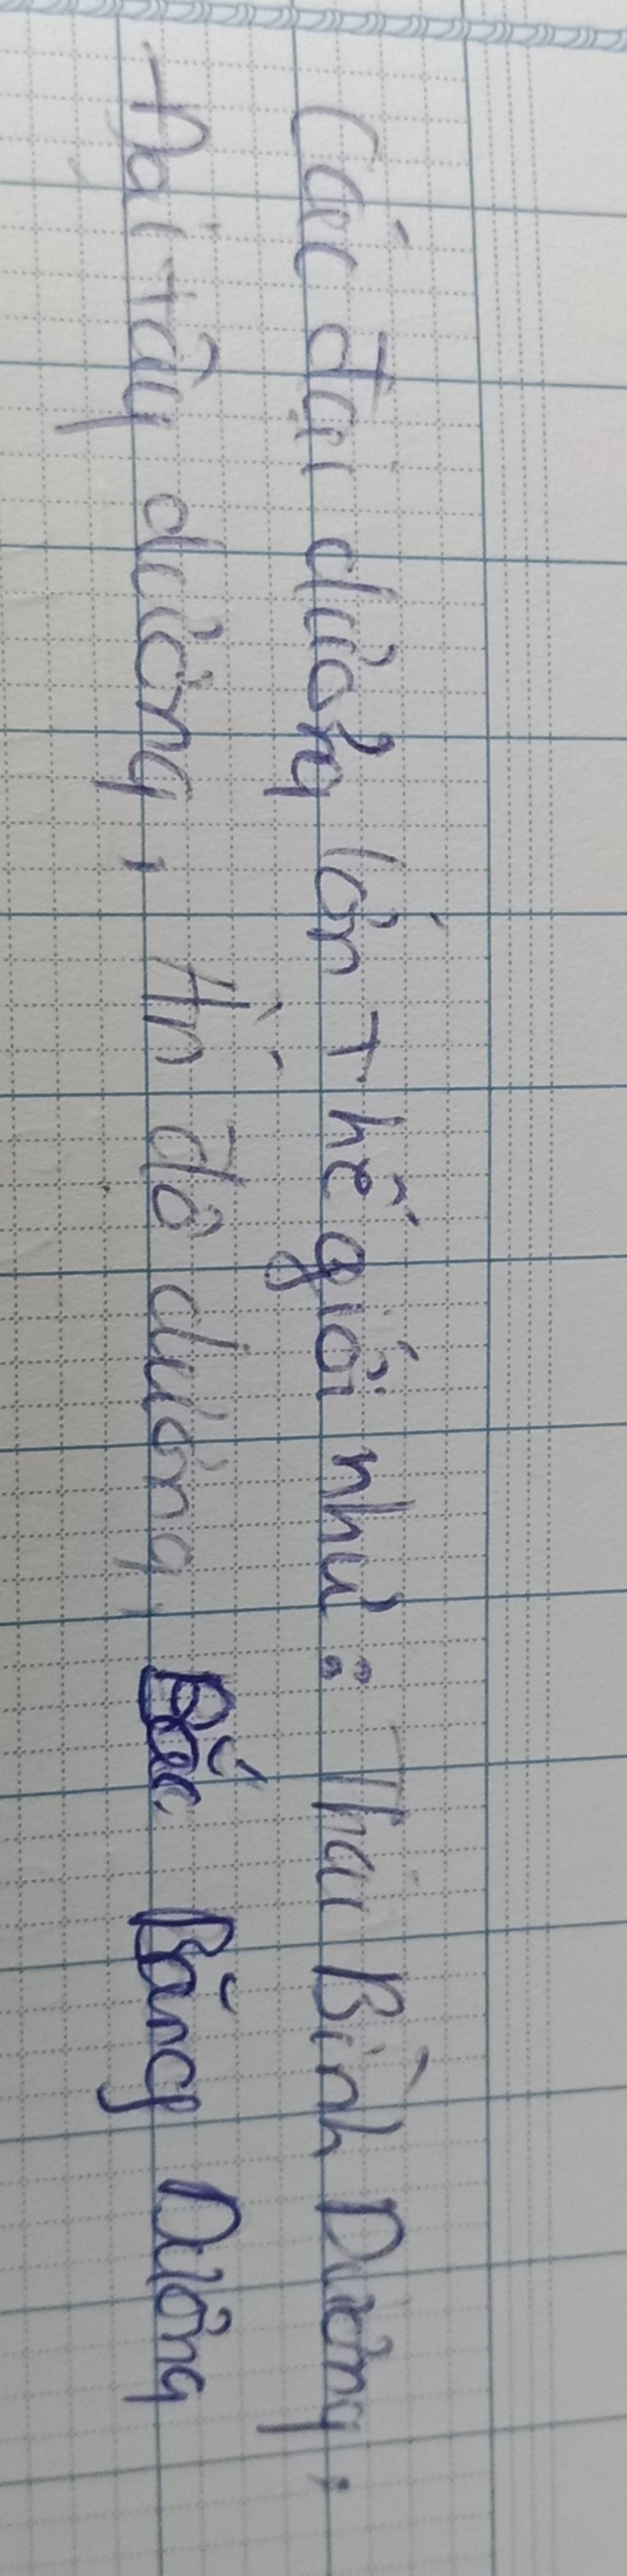 Các đại dương lớn Thế giới như: Thái Bình Dương,
Đại tây dương, Ấn độ dương, Bắc Băng Dương